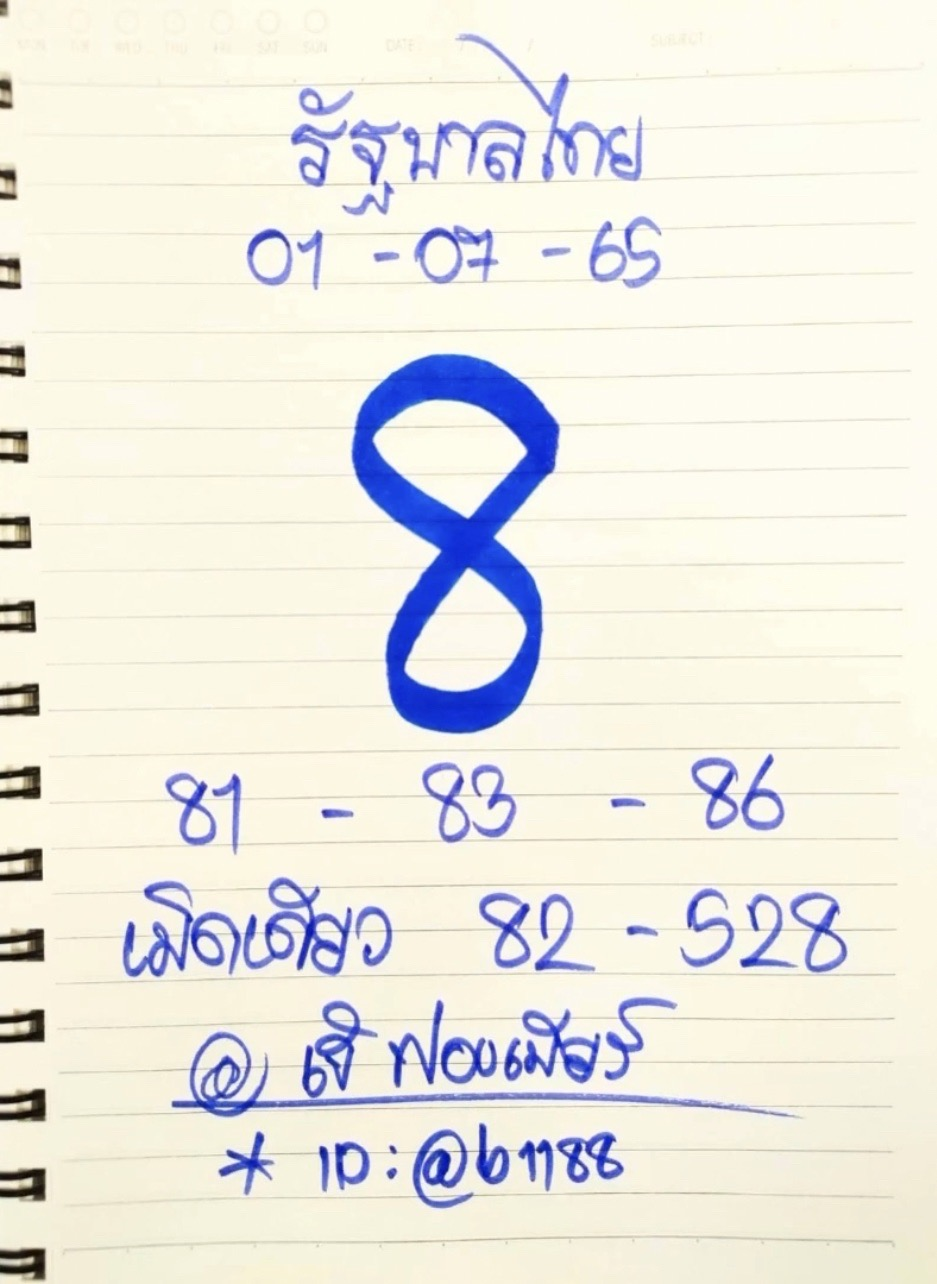 MON TUE WED THU FRI SAT SUN DATE: / / SUBJECT:
รัฐบาลไทย
01 - 07 - 65
8
81 - 83 - 86
เม็ดเดียว 82 - 528
@ เจ๊ ฟองเบียร์
* ID: @b1188